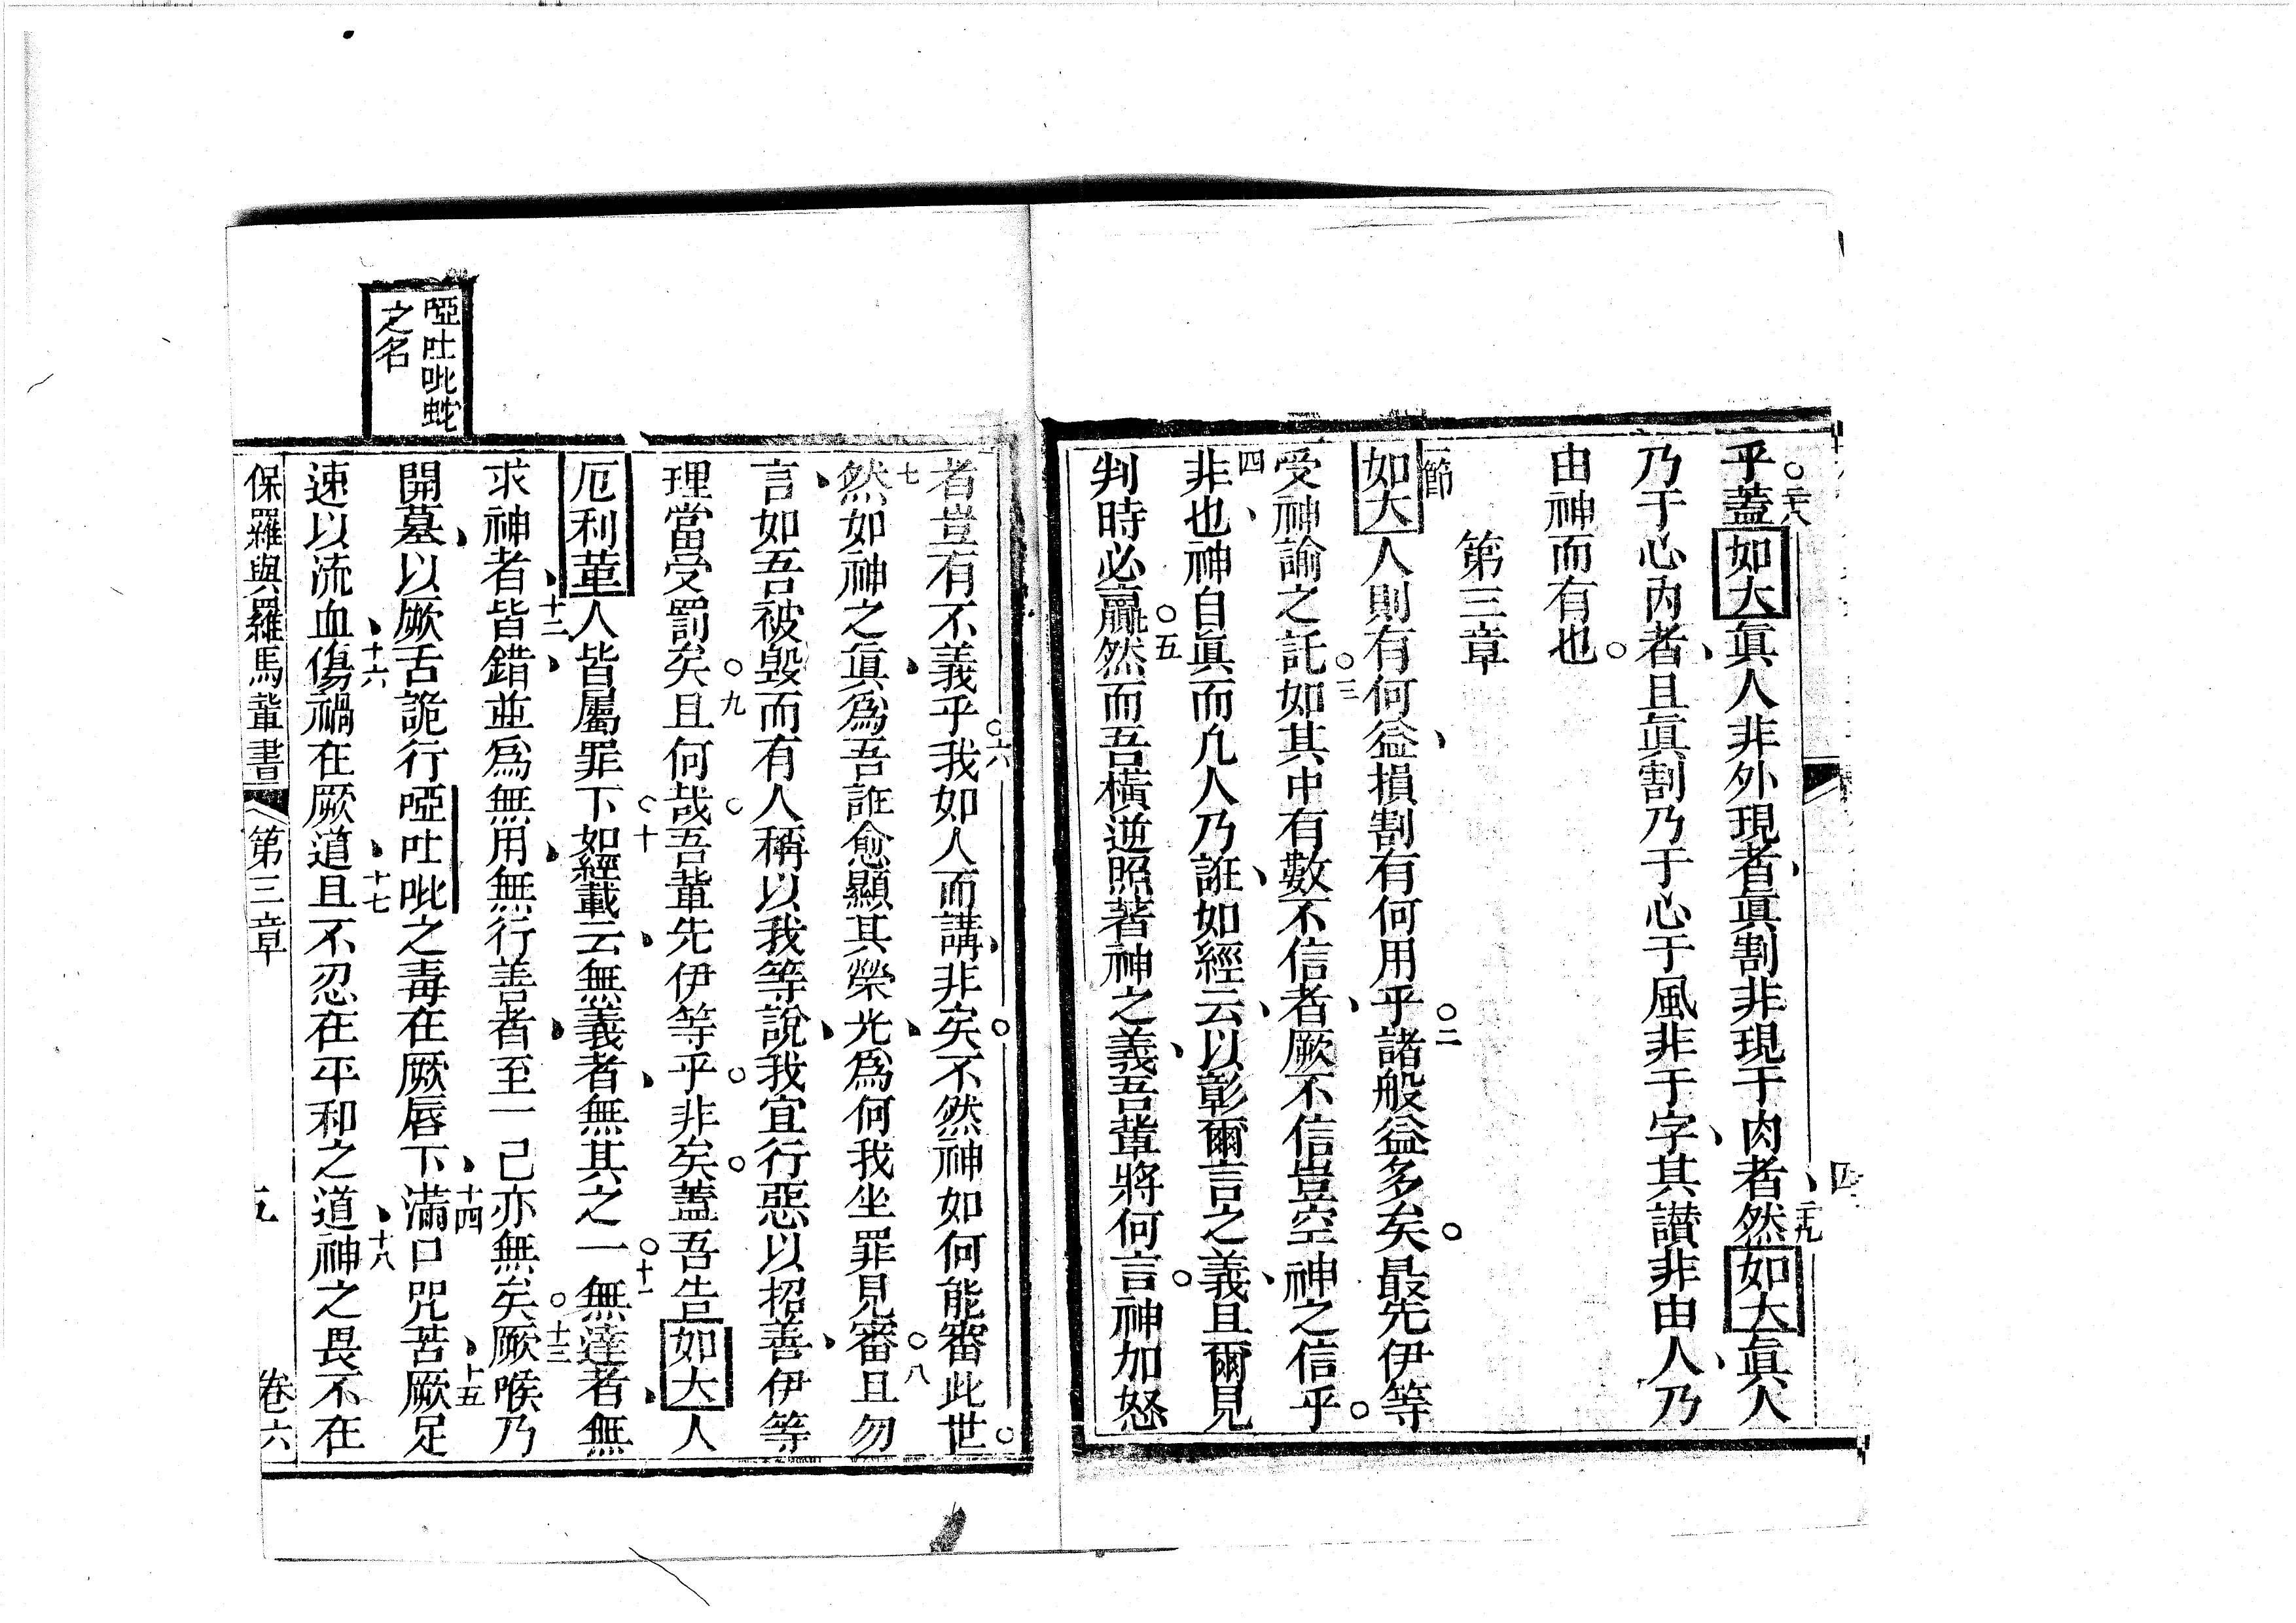 乎蓋如大眞人非外現者眞割非現于肉者然如大眞人
乃于心內者且眞割乃于心于風非于字其讃非由人乃
由神而有也
第三章
如大人則有何益損割有何用乎諸般益多矣最先伊等
受神諭之託如其中有數不信者厥不信豈空神之信乎
非也神自眞而凢人乃誑如經云以彰爾言之義且爾見
判時必贏然而吾橫逆照著神之義吾輩將何言神加怒
者豈有不義乎我如人而講非矣不然神如何能審此世
然如神之眞爲吾誑愈顯其榮光爲何我坐罪見審且勿
言如吾被毀而有人稱以我等說我宜行惡以招善伊等
理當受罰矣且何哉吾輩先伊等乎非矣蓋吾吿如大人
厄利革人皆屬罪下如經載云無義者無其之一無達者無
求神者皆錯並爲無用無行善者至一己亦無矣厥喉乃
開墓以厥舌詭行啞吐吡之毒在厥唇下滿口咒苦厥足
速以流血傷禍在厥道且不忍在平和之道神之畏不在
啞吐吡蛇
之名
保羅與羅馬輩書 第三章 五 卷六